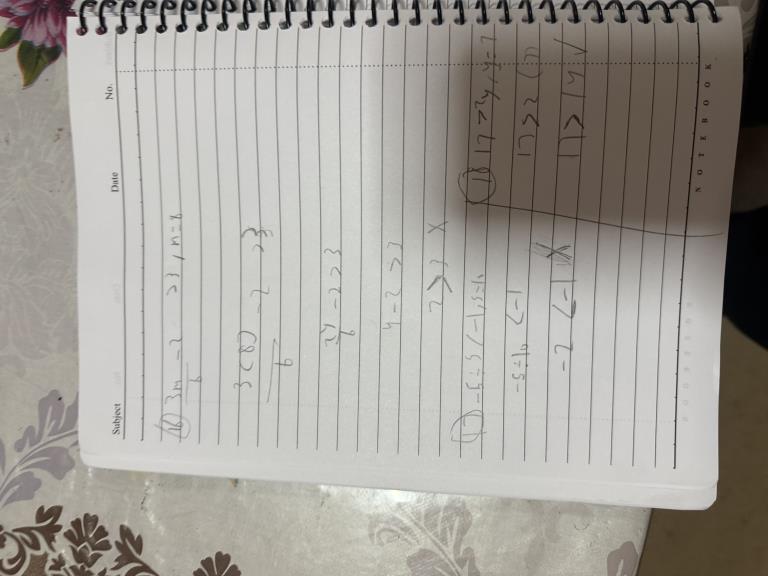 Subject Date No.
16 3m/6 - 2 > 3, m = 8
3(8)/6 - 2 > 3
24/6 - 2 > 3
4 - 2 > 3
2 > 3 X
17 -5 ÷ s < -1, s = 10
-5 ÷ 10 < -1
-2 < -1 X
18 17 > 2y, y = 7
17 > 2(7)
17 > 14 √
NOTEBOOK